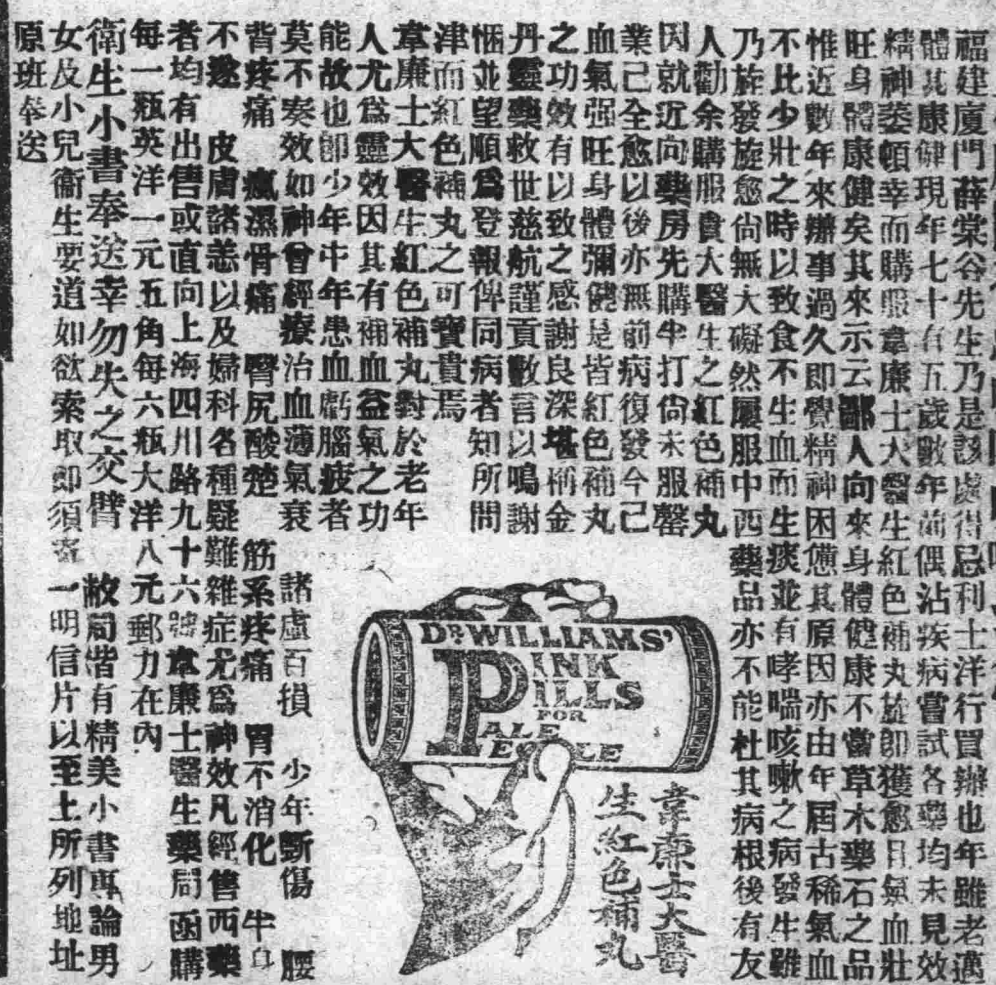 福建廈門薛棠谷先生乃是該處得忌利士洋行買辦也年雖老邁
體其康健現年七十有五歲數年前偶沾疾病嘗試各藥均未見效
精神萎頓幸而購服韋廉士大醫生紅色補丸旋即獲愈且氣血壯
旺身體康健矣其來示云鄙人向來身體健康不嘗草木藥石之品
惟近數年來辦事過久即覺精神困憊其原因亦由年屆古稀氣血
不比少壯之時以致食不生血而生痰並有哮喘咳嗽之病發生雖
乃旋發旋愈尙無大礙然屢服中西藥品亦不能杜其病根後有友
人勸余購服貴大醫生之紅色補丸
因就近向藥房先購半打尙未服罄
業已全愈以後亦無前病復發今已
血氣强旺身體彌健是皆紅色補丸
之功效有以致之感謝良深堪稱金
丹靈藥救世慈航謹貢數言以鳴謝
悃並望順爲登報俾同病者知所問
津而紅色補丸之可寶貴焉
韋廉士大醫生紅色補丸對於老年
人尤爲靈效因其有補血益氣之功
能故也即少年中年患血虧腦疲者
莫不奏效如神曾經療治血薄氣衰 諸虛百損 少年斲傷 腰
背疼痛 瘋濕骨痛 臀尻酸楚 筋系疼痛 胃不消化 半身
不遂 皮膚諸恙以及婦科各種疑難雜症尤爲神效凡經售西藥
者均有出售或直向上海四川路九十六號韋廉士醫生藥局函購
每一瓶英洋一元五角每六瓶大洋八元郵力在內
衛生小書奉送幸勿失之交臂 敝局備有精美小書專論男
女及小兒衞生要道如欲索取即須寄一明信片以至上所列地址
原班奉送
DR WILLIAMS'
PINK
PILLS
FOR
PALE
PEOPLE
韋廉士大醫
生紅色補丸